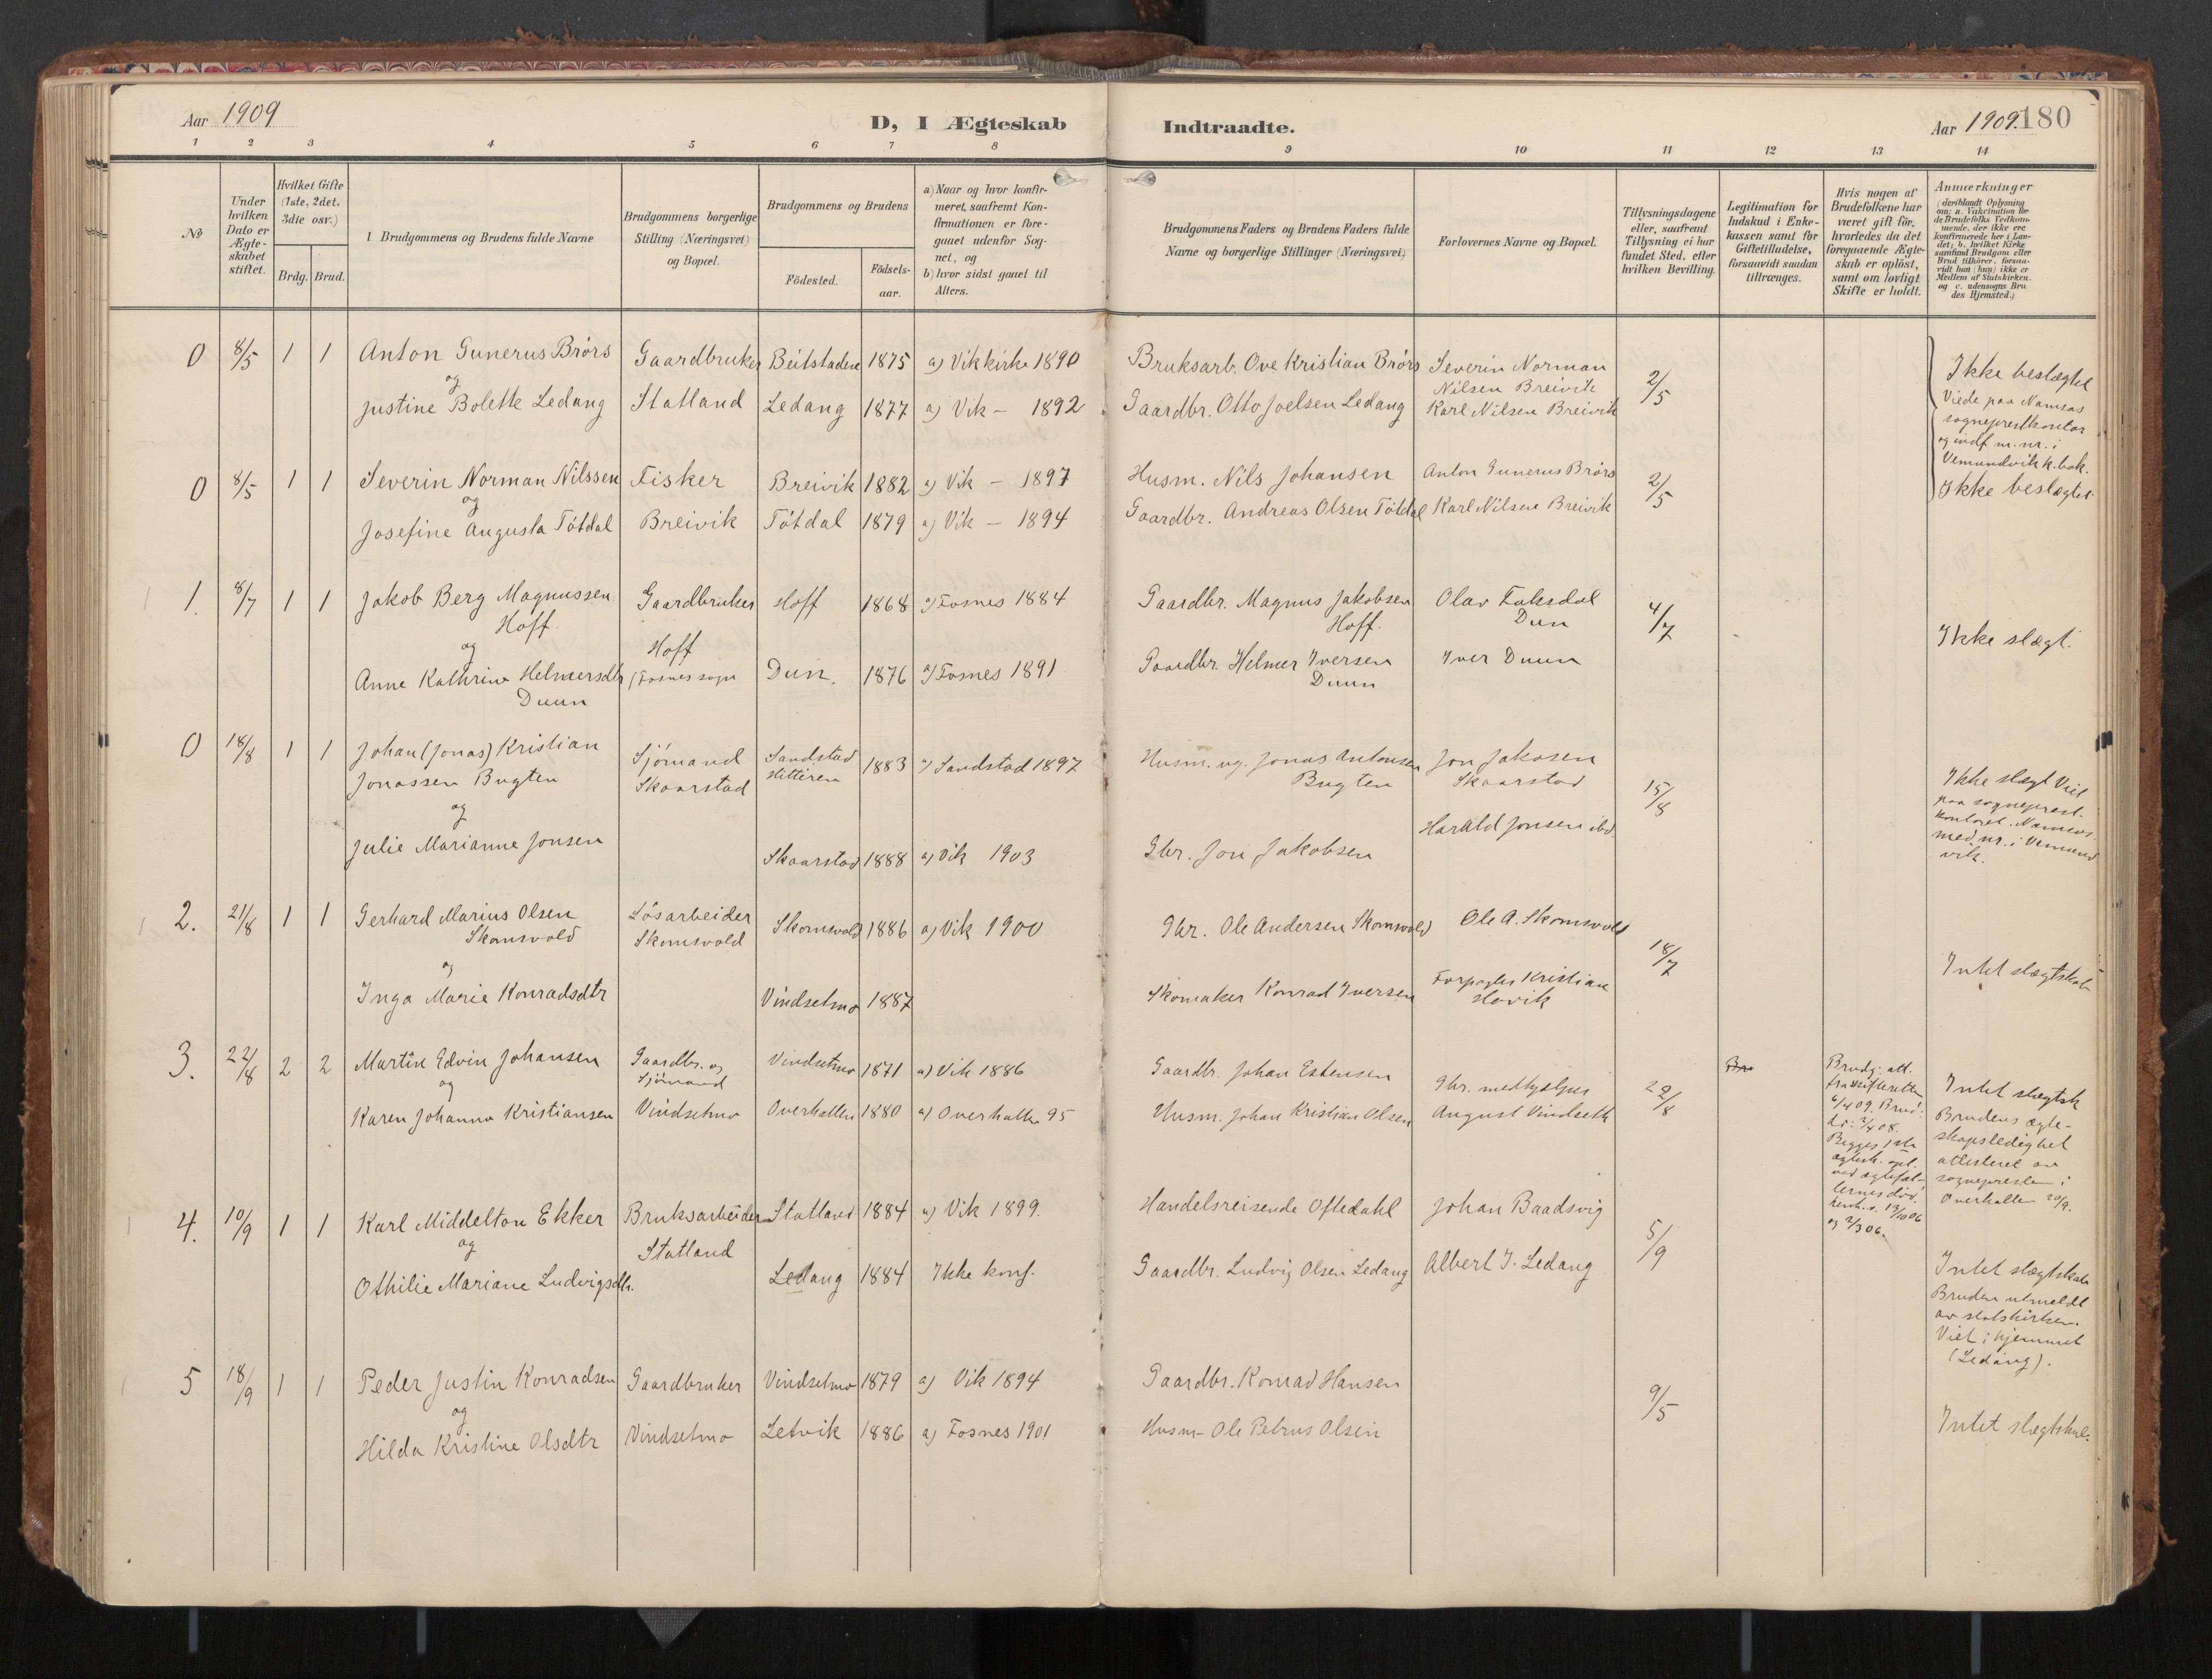 Aar 1909
D, I Ægteskab
Indtraadte.
Aar 1909. 180
1 2 3 4 5 6 7 8 9 10 11 12 13 14
No
Under
hvilken
Dato er
Ægte-
skabet
stiftet.
Hvilket Gifte
(1ste, 2det.
3die osv.)
Brdg. Brud.
Brudgommens og Brudens fulde Navne
Brudgommens borgerlige
Stilling (Næringsvei)
og Bopæl.
Brudgommens og Brudens
Födested.
Födsels-
aar.
a) Naar og hvor konfir-
meret, saafremt Kon-
firmationen er fore-
gaaet udenfor Sog-
net, og
b) hvor sidst gaaet til
Alters.
Brudgommens Faders og Brudens Faders fulde
Navne og borgerlige Stillinger (Næringsvei)
Forlovernes Navne og Bopæl.
Tillysningsdagene
eller, saafremt
Tillysning ei har
fundet Sted, efter
hvilken Bevilling.
Legitimation for
Indskud i Enke-
kassen samt for
Giftetilladelse,
forsaavidt saadan
tiltrænges.
Hvis nogen af
Brudefolkene har
været gift för,
hvorledes da det
foregaaende Ægte-
skab er oplöst,
samt om lovligt
Skifte er holdt.
Anmærkninger
(deriblandt Oplysning
om: a. Vakcination for
de Brudefolks Vedkom-
mende, der ikke ere
konfirmerede her i Lan-
det; b. hvilket Kirke
samfund Brudgom eller
Brud tilhörer, forsaa-
vidt han (hun) ikke er
Medlem af Statskirken.
og c. udensogns Bru
des Hjemsted.)
0 8/5 1 1 Anton Gunerus Brörs Gaardbruker Beitstaden 1875 a) Vik kirke 1890 Bruksarb. Ove Kristian Brörs Severin Norman
og
Nilsen Breivik 2/5
Justine Bolette Ledang Statland Ledang 1877 a) Vik — 1892 Gaardbr. Otto Joelsen Ledang Karl Nilsen Breivik
Ikke beslægtet
Viede paa Namsos
sogneprestkontor
og indf m. nr. i
Vemundvik k.bok.
0 8/5 1 1 Severin Norman Nilssen Fisker Breivik 1882 a) Vik — 1897 Husm. Nils Johansen Anton Gunerus Brörs 2/5 Ikke beslægtet.
og
Josefine Augusta Tötdal Breivik Tötdal 1879 a) Vik — 1894 Gaardbr. Andreas Olsen Tötdal Karl Nilsen Breivik
1. 8/7 1 1 Jakob Berg Magnussen Gaardbruker Hoff 1868 a) Fosnes 1884 Gaardbr. Magnus Jakobsen Olav Faksdal 4/7
Hoff. Hoff. Dun
og Hoff Ikke slægt.
Anne Kathrine Helmersdtr (Fosnes sogn Dun. 1876 a) Fosnes 1891 Gaardbr. Helmer Iversen Iver Duun
Duun Duun
0 18/8 1 1 Johan (Jonas) Kristian Sjömand Sandstad 1883 a) Sandstad 1897 Husm. ug. Jonas Antonsen Jon Jakosen
Jonassen Bugten Skaarstad Hitteren Bugten Skaarstad 15/8
og
Harald Jonsen ibd
Julie Marianne Jonsen Skaarstad 1888 a) Vik 1903 Gbr. Jon Jakobsen
Ikke slægt Viet
paa sogneprest-
kontoret. Namsos.
med nr. i Vemund
vik.
2. 21/8 1 1 Gerhard Marius Olsen Lösarbeider Skomsvold 1886 a) Vik 1900 Gbr. Ole Andersen Skomsvold Ole A. Skomsvold 18/7
Skomsvold Skomsvold
og Intet slægtskab
Inga Marie Konradsdtr Vindsetmo 1887 Skomaker Konrad Iversen Forpagter Kristian
Hovik
3. 22/8 2 2 Martin Edvin Johansen Gaardbr. og Vindsetmo 1871 a) Vik 1886 Gaardbr. Johan Estensen Gbr. 22/8
og Sjömand
Karen Johanna Kristiansen Vindsetmo Overhallen 1880 a) Overhalla 95 Husm. Johan Kristian Olsen August Vindseth
Brudg. att.
fra skifteretten
6/4 09. Brud.
do: 7/4 08.
Begges 1ste
ægtesk. opl.
ved ægtefæl-
lernes död.
henh.v. 13/10 06
og 7/3 06.
Intet slægtsk
Brudens ægte-
skapsledighet
attesteret av
sognepresten i
Overhallen 20/9.
4. 10/9 1 1 Karl Middelton Ekker Bruksarbeider Statland 1884 a) Vik 1899. Handelsreisende Oftedahl Johan Baadsvig 5/9
og Statland
Othilie Mariane Ludvigsdtr. Ledang 1884 Ikke konf. Gaardbr. Ludvig Olsen Ledang Albert J. Ledang
Intet slægtskab
Bruden utmeldt
av statskirken.
Viet i hjemmet
(Ledang).
5 18/9 1 1 Peder Justin Konradsen Gaardbruker Vindsetmo 1879 a) Vik 1894 Gaardbr. Konrad Hansen 9/5
og
Hilda Kristine Olsdtr Vindsetmo Letvik 1886 a) Fosnes 1901 Husm— Ole Petrus Olsen Intet slægtskab.